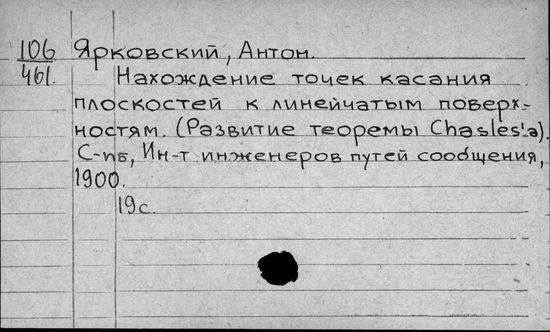 106 Ярковский, Антон.
461. Нахождение точек касания
плоскостей к линейчатым поверх-
ностям. (Развитие теоремы Chasles'a).
С-пб, Ин-т инженеров путей сообщения,
1900.
19с.